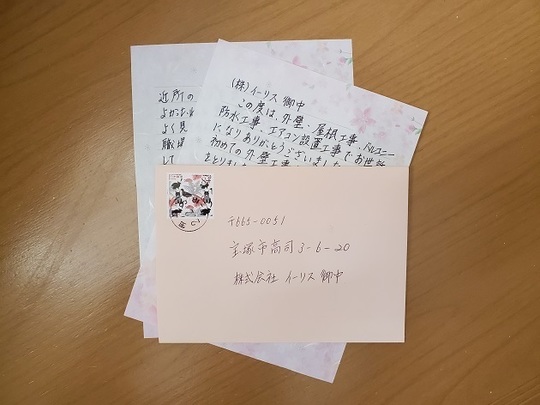 近所の
よく見
職場
して
(株)イーリス 御中
この度は、外壁、屋根工事、バルコニー
防水工事、エアコン設置工事でお世話
になりありがとうございました。
初めての外壁工事
〒665-0051
宝塚市高司3-6-20
株式会社 イーリス 御中